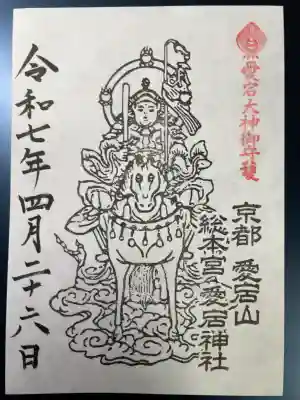 愛宕大神御
京都 愛宕山
総本宮 愛宕神社
令和七年四月二十六日